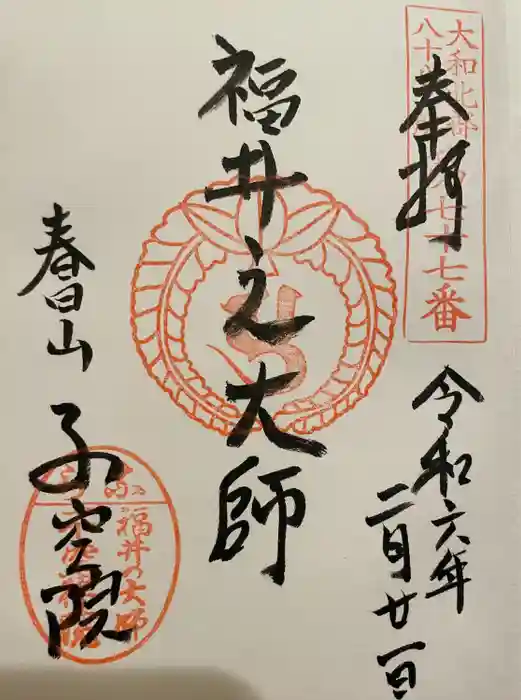 奉拝
大和北部
八十八
七十七番
令和六年
二月廿一日
福井之大師
春日山
不空院
福井の大師